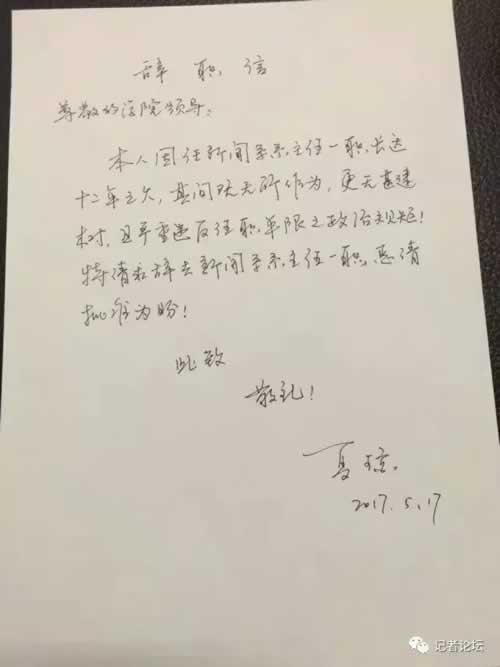 辞职信
尊敬的学院领导：
本人因任新闻系系主任一职长达
十二年之久，其间既无所作为，更无甚建
树，且严重违反任职年限之政治规矩！
特请求辞去新闻系系主任一职，恳请
批准为盼！
此致
敬礼！
夏琼
2017.5.17
记者论坛